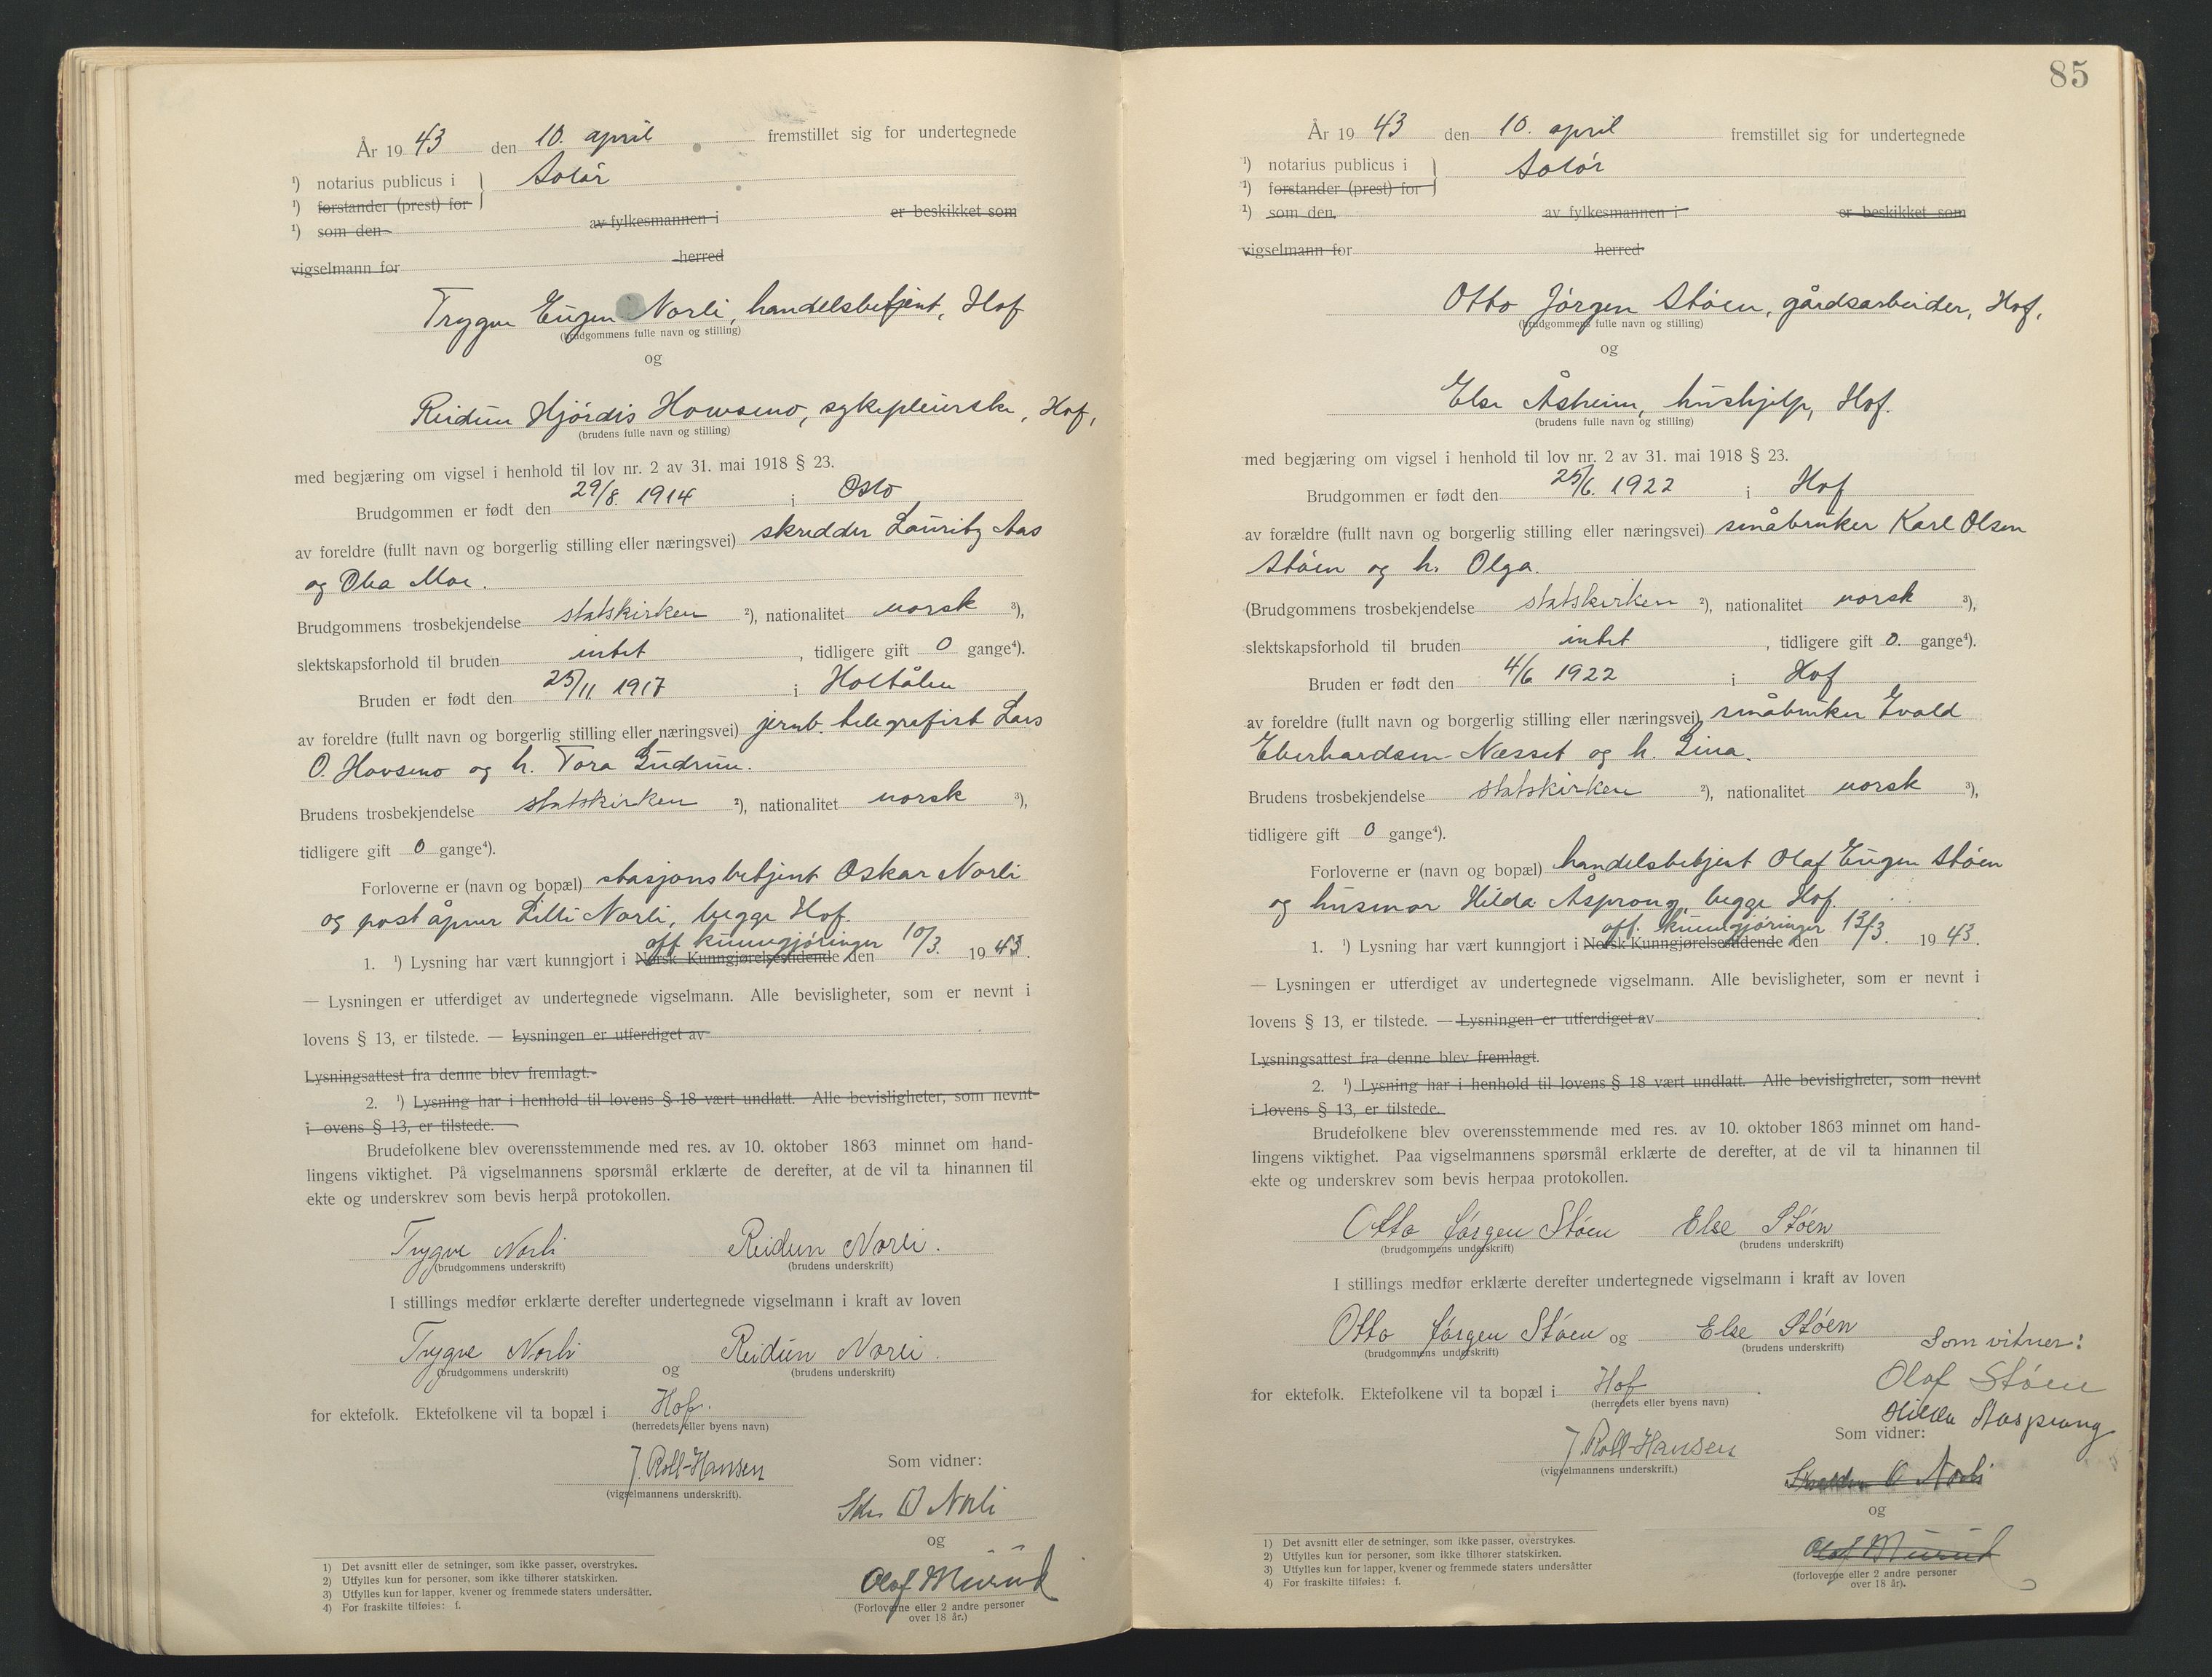 År 1943 den 10. april fremstillet sig for undertegnede
¹) notarius publicus i } Solør
¹) forstander (prest) for
¹) som den av fylkesmannen i er beskikket som
vigselmann for herred
Trygve Eugen Norli, handelsbetjent, Hof
(brudgommens fulle navn og stilling)
og
Reidun Hjördis Hovseno, sykepleierske, Hof,
(brudens fulle navn og stilling)
med begjæring om vigsel i henhold til lov nr. 2 av 31. mai 1918 § 23.
Brudgommen er født den 29/8. 1914 i Oslo
av foreldre (fullt navn og borgerlig stilling eller næringsvei) skredder Lauritz Aas
og Olea Moe.
Brudgommens trosbekjendelse statskirken ²), nationalitet norsk ³),
slektskapsforhold til bruden intet, tidligere gift 0 gange⁴).
Bruden er født den 25/11 1917 i Holtålen
av foreldre (fullt navn og borgerlig stilling eller næringsvei) jernb. telegrafist Lars
O. Hovseno og h. Tora Gudrun.
Brudens trosbekjendelse statskirken ²), nationalitet norsk ³),
tidligere gift 0 gange⁴).
Forloverne er (navn og bopæl) stasjonsbetjent Oskar Norli
og poståpner Lilli Norli, begge Hof.
off. kunngjøringer
1. ¹) Lysning har vært kunngjort i Norsk Kunngjørelsestidende den 10/3. 1943.
— Lysningen er utferdiget av undertegnede vigselmann. Alle bevisligheter, som er nevnt i
lovens § 13, er tilstede. — Lysningen er utferdiget av
Lysningsattest fra denne blev fremlagt.
2. ¹) Lysning har i henhold til lovens § 18 vært undlatt. Alle bevisligheter, som nevnt
i ovens § 13, er tilstede.
Brudefolkene blev overensstemmende med res. av 10. oktober 1863 minnet om hand-
lingens viktighet. På vigselmannens spørsmål erklærte de derefter, at de vil ta hinannen til
ekte og underskrev som bevis herpå protokollen.
Trygve Norli Reidun Norli.
(brudgommens underskrift) (brudens underskrift)
I stillings medfør erklærte derefter undertegnede vigselmann i kraft av loven
Trygve Norli og Reidun Norli.
(brudgommens underskrift) (brudens underskrift)
for ektefolk. Ektefolkene vil ta bopæl i Hof.
(herredets eller byens navn)
J. Roll-Hansen
(vigselmannens underskrift).
Som vidner:
O Norli
og
Olaf
(Forloverne eller 2 andre personer
over 18 år.)
1) Det avsnitt eller de setninger, som ikke passer, overstrykes.
2) Utfylles kun for personer, som ikke tilhører statskirken.
3) Utfylles kun for lapper, kvener og fremmede staters undersåtter.
4) For fraskilte tilføies: f.
85
År 1943 den 10. april fremstillet sig for undertegnede
¹) notarius publicus i } Solør
¹) forstander (prest) for
¹) som den av fylkesmannen i er beskikket som
vigselmann for herred
Otto Jørgen Støen, gårdsarbeider, Hof,
(brudgommens fulle navn og stilling)
og
Else Åsheim, hushjelp, Hof.
(brudens fulle navn og stilling)
med begjæring om vigsel i henhold til lov nr. 2 av 31. mai 1918 § 23.
Brudgommen er født den 25/6. 1922 i Hof
av forældre (fullt navn og borgerlig stilling eller næringsvei) småbruker Karl Olsen
Støen og h. Olga.
(Brudgommens trosbekjendelse statskirken ²), nationalitet norsk ³),
slektskapsforhold til bruden intet, tidligere gift 0. gange⁴).
Bruden er født den 4/6 1922 i Hof
av foreldre (fullt navn og borgerlig stilling eller næringsvei) småbruker Evald
Eberhardsen Næsset og h. Gina.
Brudens trosbekjendelse statskirken ²), nationalitet norsk ³),
tidligere gift 0 gange⁴).
Forloverne er (navn og bopæl) handelsbetjent Olaf Eugen Støen
og husmor Hilda Åsprong, begge Hof.
off. kunngjøringer
1. ¹) Lysning har vært kunngjort i Norsk Kunngjørelsestidende den 13/3. 1943.
— Lysningen er utferdiget av undertegnede vigselmann. Alle bevisligheter, som er nevnt i
lovens § 13, er tilstede. — Lysningen er utferdiget av
Lysningsattest fra denne blev fremlagt.
2. ¹) Lysning har i henhold til lovens § 18 vært undlatt. Alle bevisligheter, som nevnt
i lovens § 13, er tilstede.
Brudefolkene blev overensstemmende med res. av 10. oktober 1863 minnet om hand-
lingens viktighet. Paa vigselmannens spørsmål erklærte de derefter, at de vil ta hinannen til
ekte og underskrev som bevis herpaa protokollen.
Otto Jørgen Støen Else Støen
(brudgommens underskrift) (brudens underskrift)
I stillings medfør erklærte derefter undertegnede vigselmann i kraft av loven
Otto Jørgen Støen og Else Støen
(brudgommens underskrift) (brudens underskrift)
Som vitner:
for ektefolk. Ektefolkene vil ta bopæl i Hof.
(herredets eller byens navn)
Olaf Støen
Hilda Aasprang
J. Roll-Hansen
(vigselmannens underskrift.)
Som vidner:
O Norli
og
Olaf
(forloverne eller 2 andre personer
over 18 år).
1) Det avsnitt eller de setninger, som ikke passer, overstrykes.
2) Utfylles kun for personer, som ikke tilhører statskirken.
3) Utfylles kun for lapper, kvener og fremmede staters undersåtter
4) For fraskilte tilføies: f.